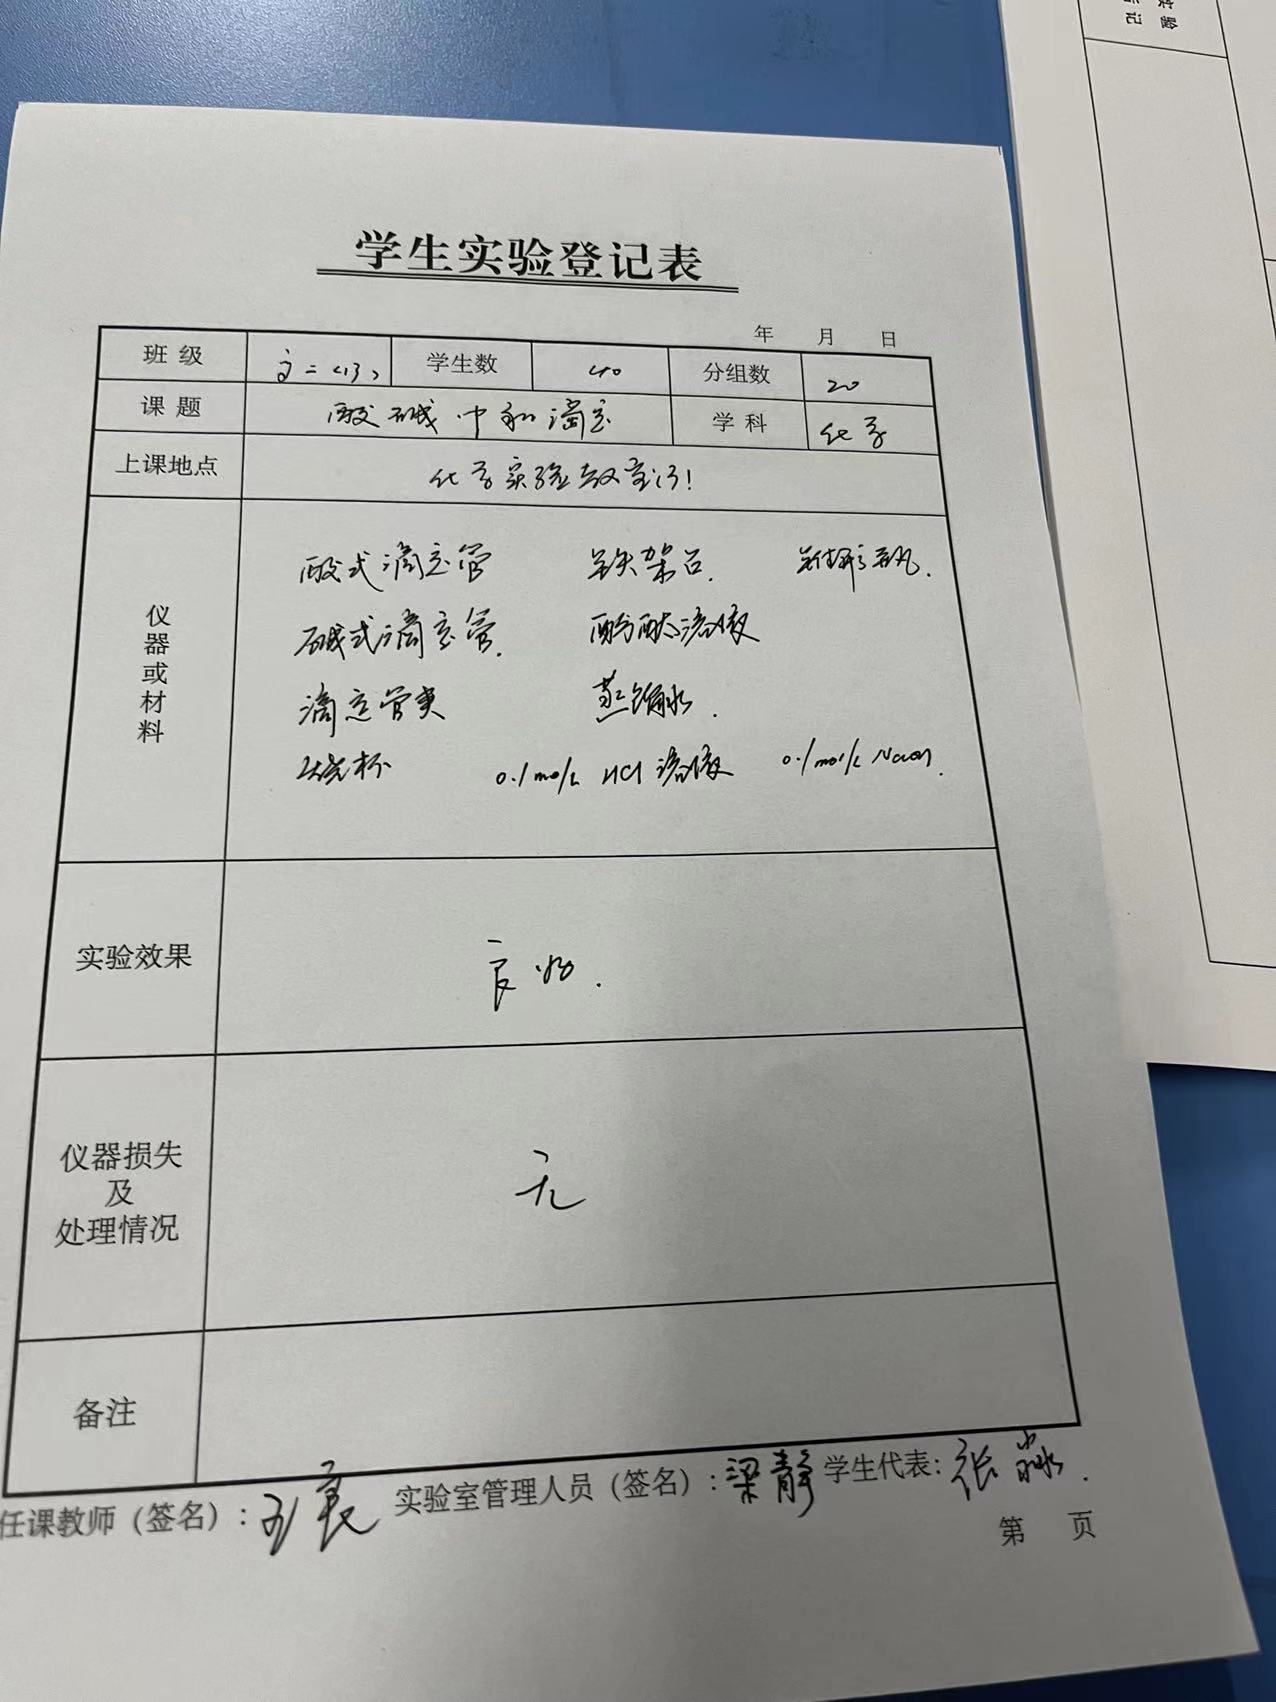 学生实验登记表
年 月 日
班级 高二(13) 学生数 40 分组数 20
课题 酸碱中和滴定 学科 化学
上课地点 化学实验教室(3)!
仪器或材料
酸式滴定管 铁架台. 锥形瓶.
碱式滴定管. 酚酞溶液
滴定管夹 蒸馏水.
烧杯 0.1mol/L HCl溶液 0.1mol/L NaOH.
实验效果 良好.
仪器损失
及
处理情况
无
备注
任课教师（签名）: 实验室管理人员（签名）: 梁静 学生代表: 张淼.
第 页
实验
记